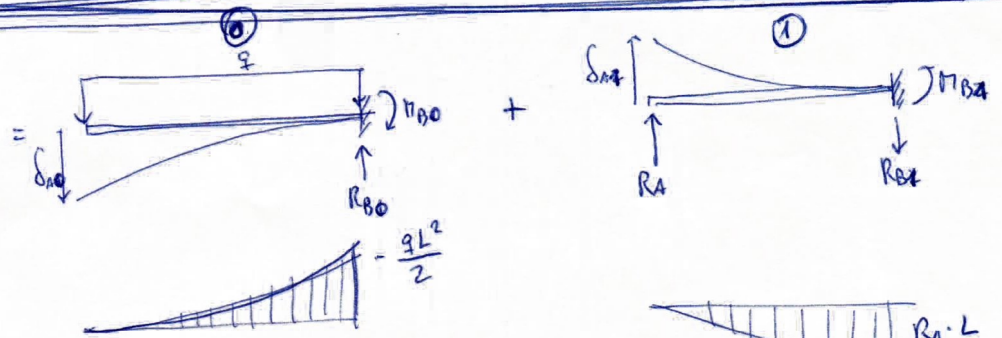 0
1
q
=
δA0
MB0
RB0
+
δA1
RA
MB1
RB1
- qL²/2
RA·L